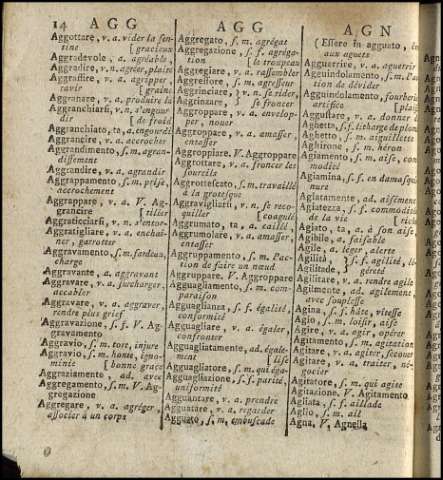 14 AGG
Aggottare, v. a. vider la sen-
tine [gracieux
Aggradevole, a. agréable,
Aggradire, v. n. agréer, plaire
Aggraffire, v. a. agripper,
ravir [graine
Aggranare, v. a. produire la
Aggranchiarsi, v. n. s'engour-
dir de froid
Aggranchiato, ta, a. engourdi
Aggrancire, v. a. accrocher
Aggrandimento, s. m. agran-
dissement
Aggrandire, v. a. agrandir
Aggrappamento, s. m. prise,
accrochement
Aggrappare, v. a. V. Ag-
grancire [tiller
Aggraticciarsi, v. n. s'entor-
Aggratigliare, v. a. enchaî-
ner, garrotter
Aggravamento, s. m. fardeau,
charge
Aggravante, a. aggravant
Aggravare, v. a. surcharger,
accabler
Aggravare, v. a. aggraver,
rendre plus grief
Aggravazione, s. f. V. Ag-
gravamento
Aggravio, s. m. tort, injure
Aggravio, s. m. honte, igno-
minie [bonne grace
Aggraziamente, ad. avec
Aggregamento, s. m. V. Ag-
gregazione
Aggregare, v. a. agréger,
associer à un corps
AGG
Aggregato, s. m. agrégat
Aggregazione, s. f. agréga-
tion [le troupeau
Aggregiare, v. a. rassembler
Aggressore, s. m. agresseur
Aggrinciare, } v. n. se rider,
Aggrinzare, } se froncer
Aggroppare, v. a. envelop-
per, nouer
Aggroppare, v. a. amasser,
entasser
Aggroppiare. V. Aggroppare
Aggrottare, v. a. froncer les
sourcils
Aggrottescato, s. m. travaillé
à la grotesque
Aggravigliarsi, v. n. se reco-
quiller [coagulé
Aggrumato, ta, a. caillé,
Aggrumolare, v. a. amasser,
entasser
Aggruppamento, s. m. l'ac-
tion de faire un nœud
Aggruppare. V. Aggroppare
Agguagliamento, s. m. com-
paraison
Agguaglianza, s. f. égalité,
conformité
Agguagliare, v. a. égaler,
confronter
Agguagliatamente, ad. égale-
ment [lise
Agguagliatore, s. m. qui éga-
Agguagliazione, s. f. parité,
uniformité
Agguantare, v. a. prendre
Agguatare, v. a. regarder
Agguato, s. m. embuscade
AGN
(Essere in agguato,
aux aguets
Agguerrire, v. a. aguerrir
Agguindolamento, s. m. l'ac-
tion de dévider
Agguindolamento, fourberie,
artifice [plaisir
Aggustare, v. a. donner du
Aghetta, s. f. litharge de plomb
Aghetto, s. m. aiguillette
Aghirone, s. m. héron
Agiamento, s. m. aise, com-
modité
Agiamina, s. f. en damasqui-
nure
Agiatamente, ad. aisément
Agiatezza, s. f. commodités
de la vie [riche
Agiato, ta, a. à son aise,
Agibile, a. faisable
Agile, a. léger, alerte
Agilità } s. f. agilité, lé-
Agilitade, } géreté
Agilitare, v. a. rendre agile
Agilmente, ad. agilement,
avec souplesse
Agina, s. f. hâte, vitesse
Agio, s. m. loisir, aise
Agire, v. a. agir, opérer
Agitamento, s. m. agitation
Agitare, v. a. agiter, secouer
Agitare, v. a. traiter, né-
gocier
Agitatore, s. m. qui agite
Agitazione, V. Agitamento
Agliata, s. f. aillade
Aglio, s. m. ail
Agna, V. Agnella